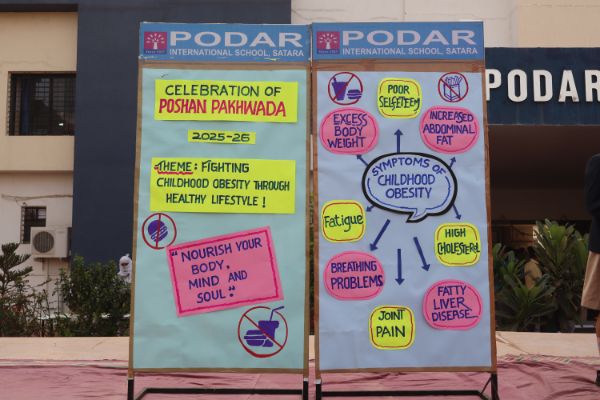 PODAR
INTERNATIONAL SCHOOL, SATARA
CELEBRATION OF
POSHAN PAKHWADA
2025-26
THEME: FIGHTING
CHILDHOOD OBESITY THROUGH
HEALTHY LIFESTYLE!
"NOURISH YOUR
BODY,
MIND AND
SOUL."
PODAR
INTERNATIONAL SCHOOL, SATARA
POOR
SELFETEEM
EXCESS
BODY
WEIGHT
INCREASED
ABDOMINAL
FAT
SYMPTOMS OF
CHILDHOOD
OBESITY
Fatigue
HIGH
CHOLESTEROL
BREATHING
PROBLEMS
FATTY
LIVER
DISEASE
JOINT
PAIN
PODAR